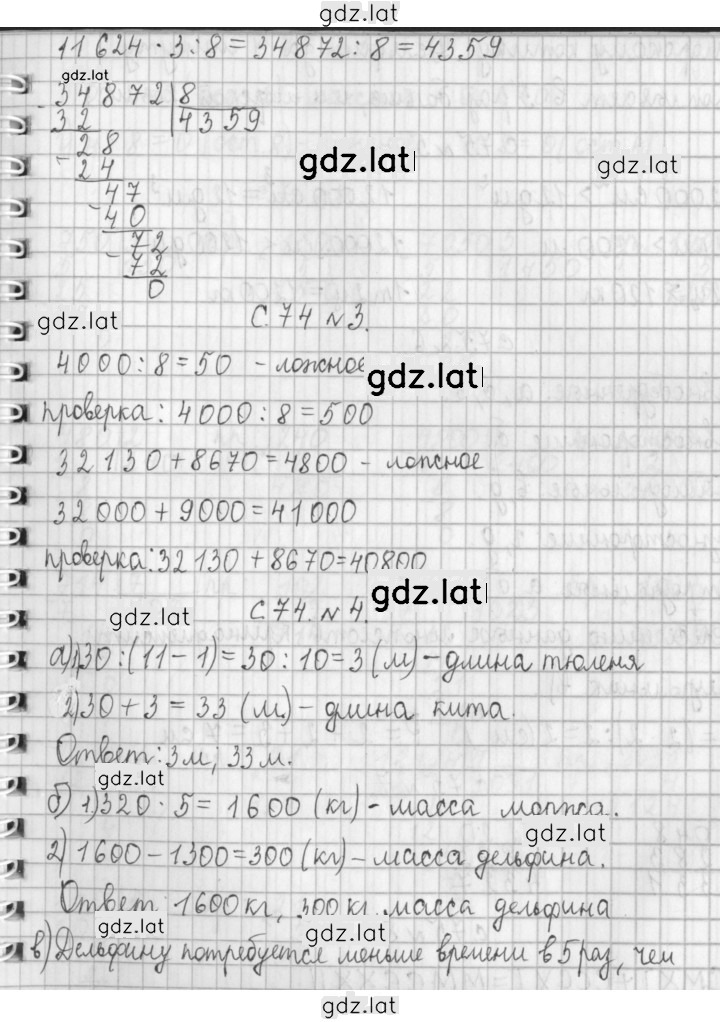 gdz.lat
11 624 · 3 : 8 = 34 872 : 8 = 4359
gdz.lat
34872 | 8
32 4359
28
gdz.lat
gdz.lat
24
47
40
72
72
0
gdz.lat
С. 74 №3.
4000 : 8 = 50 - ложное
gdz.lat
проверка: 4000 : 8 = 500
32130 + 8670 = 4800 - ложное
32000 + 9000 = 41000
проверка: 32130 + 8670 = 40800
gdz.lat
gdz.lat
С. 74. №4.
а) 1) 30 : (11 - 1) = 30 : 10 = 3 (м) - длина тюленя
2) 30 + 3 = 33 (м) - длина кита.
Ответ: 3м; 33м.
gdz.lat
б) 1) 320 · 5 = 1600 (кг) - масса моржа.
gdz.lat
2) 1600 - 1300 = 300 (кг) - масса дельфина.
Ответ: 1600 кг, 300 кг масса дельфина
gdz.lat
gdz.lat
в) Дельфину потребуется меньше времени в 5 раз, чем
gdz.lat